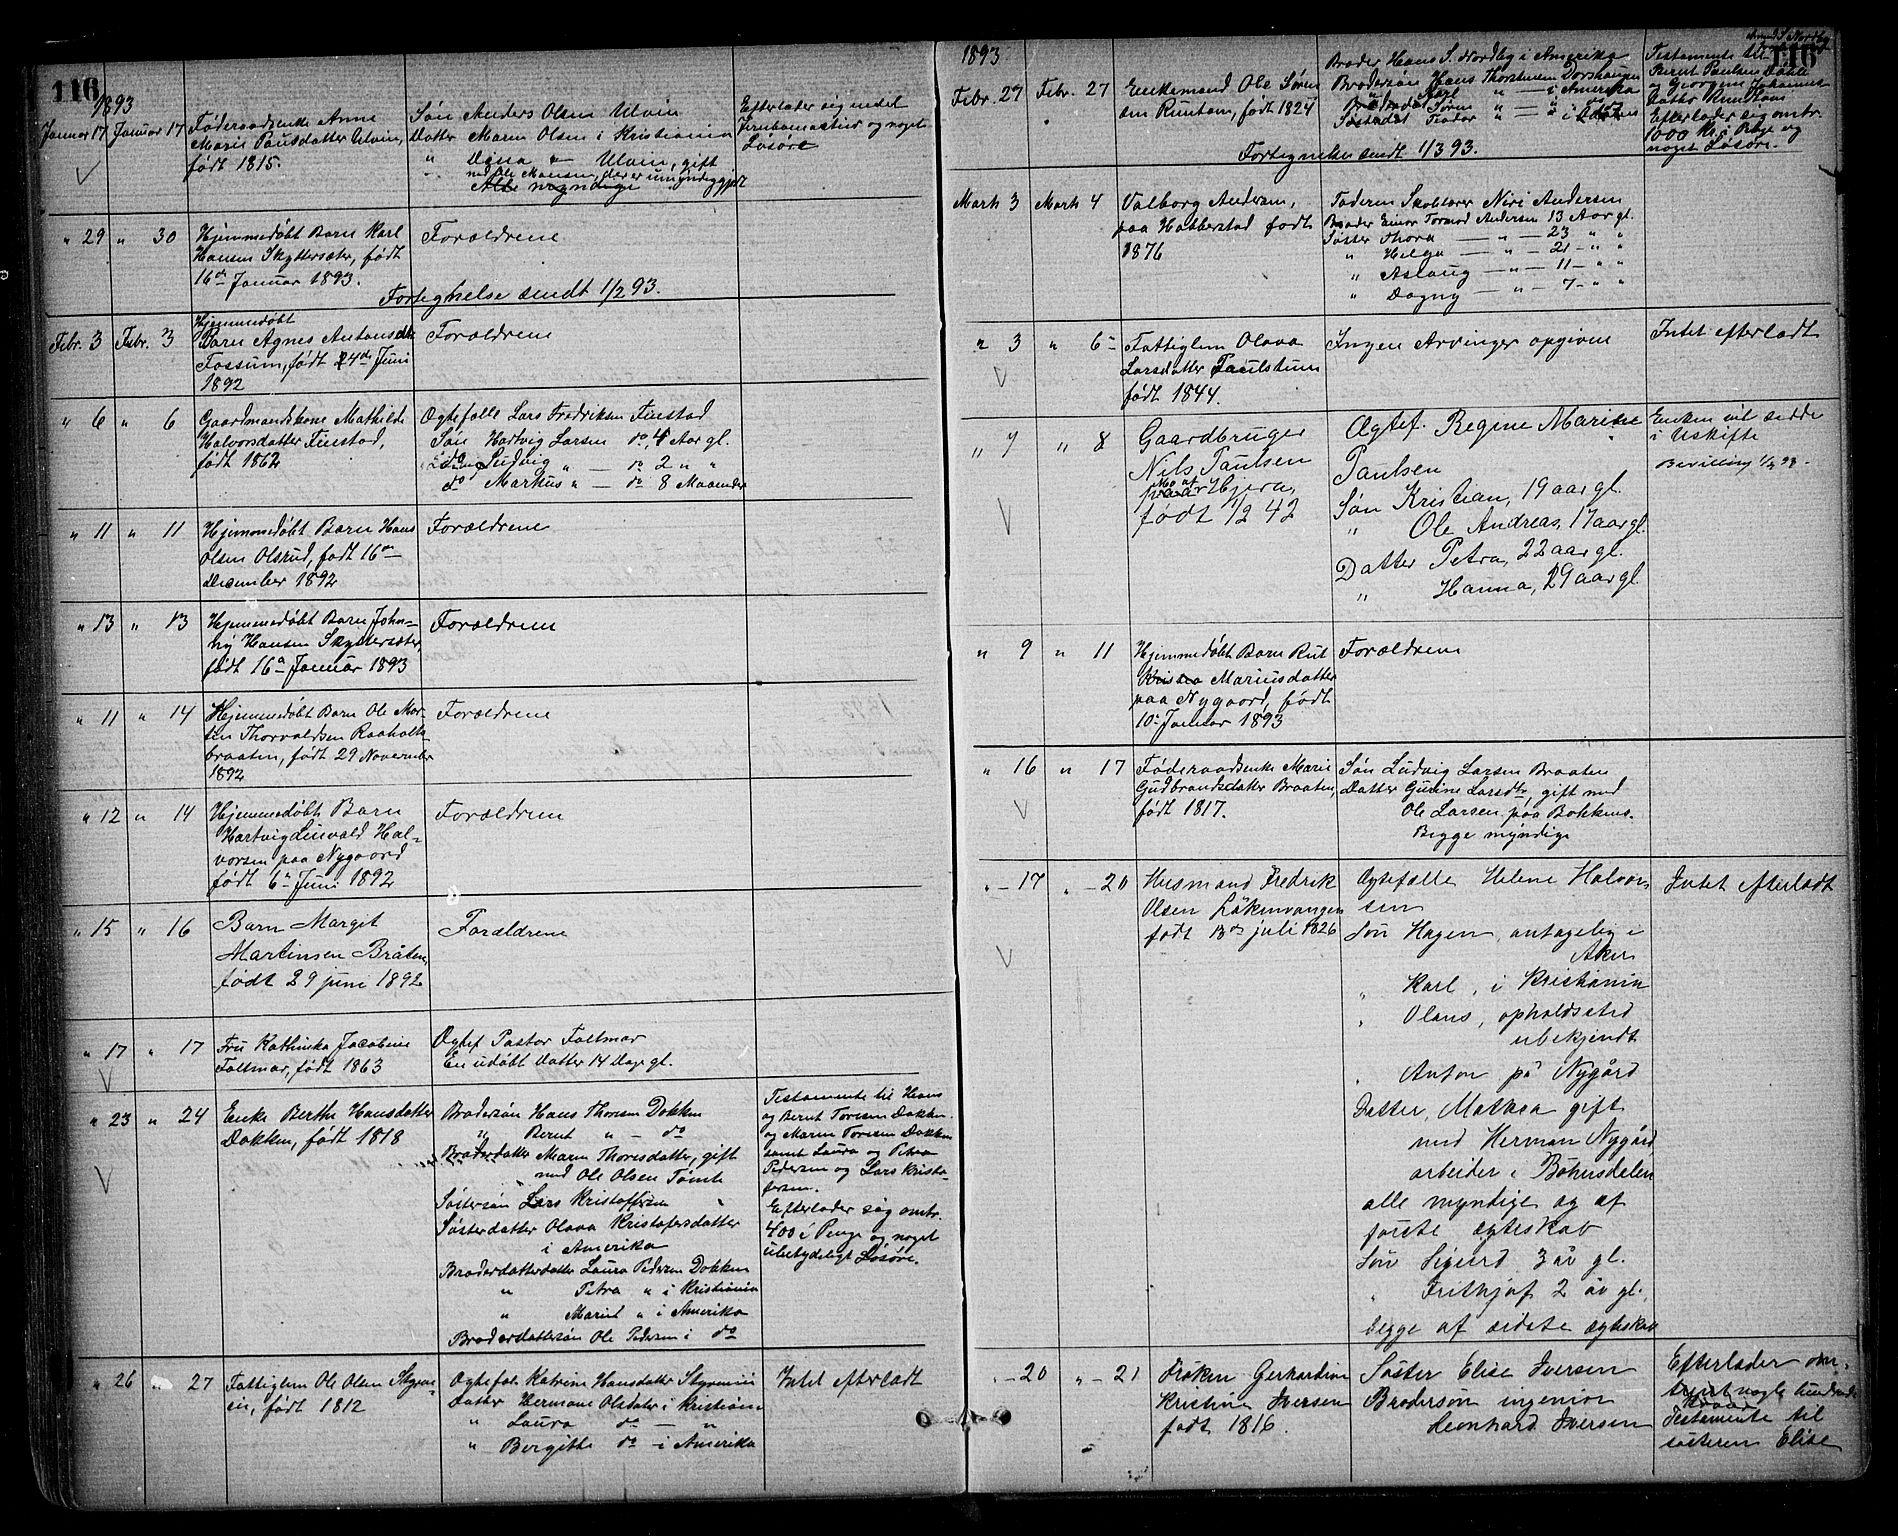 116
1893
Januar 17 Januar 17 Føderaadsenke Anne
Marie Paulsdatter Ulvin,
født 1815.
Søn Anders Olsen Ulvin
Datter Maren Olsen i Kristiania
" Dina " Ulvin, gift
med Ole Hansen, der er umyndiggjort
Alle myndige
Efterlader sig indet
Jernbaneaktier og noget
Løsøre
" 29 " 30 Hjemmedøbt Barn Karl
Hansen Skyttersæter, født
16de Januar 1893.
Forældrene
Fortegnelse sendt 1/2 93.
Febr. 3 Febr. 3 Hjemmedøbt
Barn Agnes Antonsdtr
Fossum, født 24de Juni
1892
Forældrene
" 6 " 6 Gaardmandskone Mathilde
Halvorsdatter Finstad,
født 1862
Ægtefælle Lars Fredriksen Finstad
Søn Hartvig Larsen do, 4 Aar gl.
do Ludvig " — do 2 " "
do Markus " — do 8 Maaneder
" 11 " 11 Hjemmedøbt Barn Hans
Olsen Olsrud, født 16de
December 1892
Forældrene
" 13 " 13 Hjemmedøbt Barn John-
ny Hansen Skyttersæter,
født 16de Januar 1893
Forældrene
" 11 " 14 Hjemmedøbt Barn Ole Mar-
tin Thorvaldsen Raaholts-
braaten, født 29 November
1892
Forældrene
" 12 " 14 Hjemmedøbt Barn
Hartvig Linvald Hal-
vorsen paa Nygaard
født 6te Juni 1892
Forældrene
" 15 " 16 Barn Margit
Martinsen Bråten,
født 29 juni 1892
Forældrene
" 17 " 17 Fru Kathinka Jacobine
Faltmar, født 1863
Ægtef Pastor Faltmar
En udøbt Datter 14 Dage gl.
" 23 " 24 Enke Berthe Hansdatter
Dokken, født 1818
Brodersøn Hans Thoresen Dokken
" Bernt " — do
Broderdatter Maren Thoresdatter, gift
med Ole Olsen Tømte
Søstersøn Lars Kristoffersen
Søsterdatter Olava Kristofersdatter
i Amerika
Broderdatterdatter Laura Pedersen Dokken
" Petra " i Kristiania
" Marie " i Amerika
Broderdattersøn Ole Pedersen i do
Testamente til Hans
og Bernt Toresen Dokken
og Maren Toresen Dokken
samt Laura og Petra
Pedersen og Lars Kristo-
fersen.
Efterlader sig omtr.
400 i Penge og noget
ubetydeligt Løsøre.
" 26 " 27 Fattiglem Ole Olsen
født 1812
Ægtefæl. Katrine Hansdatter
Datter Hermane Olsdatter i Kristiania
" Laura do — "
" Bergitte do — i Amerika
Intet efterladt
1893
116
Febr. 27 Febr. 27 Enkemand Ole Søren-
sen Runtom, født 1824
Broder Hans S. Nordby i Amerika
Brodersøn Hans Thorstensen Dorshaugen
" Karl " — i Amerika
Søren " — " do
Teodor " — "
Testamente til
Bernt Paulsen Dahle
og Georgine Johannes-
datter Runtom
Efterlader sig omtr.
1000 Kr. i Penge og
noget Løsøre.
Fortegnelse sendt 1/3 93.
Marts 3 Marts 4 Valborg Andersen,
paa Habberstad født
1876
Faderen Skolelærer Niri Andersen
Broder Einar Tormod Andersen 13 Aar gl.
Søster Thora — " — 23 " "
" Helga — " — 21 — " "
" Aslaug — " — 11 — " "
" Dagny — " — 7 — " "
" 3 " 6 Fattiglem Olava
Larsdatter
født 1844.
Ingen Arvinger opgiven
Intet efterladt
" 7 " 8 Gaardbruger
Nils Paulsen
Mo af
Hjera,
født 1/2 42
Ægtef. Regine Marie
Paulsen
Søn Kristian, 19 aar gl.
" Ole Andreas, 17 aar gl.
Datter Petra, 22 aar gl.
" Hanna, 29 aar gl.
Enken vil sidde
i Uskifte
Bevilling
" 9 " 11 Hjemmedøbt Barn Rut
Mariusdatter
paa Nygaard, født
10de Januar 1893
Forældrene
" 16 " 17 Føderaadsenke Marie
Gudbrandsdatter Braaten,
født 1817.
Søn Ludvig Larsen Braaten
Datter Gunine Larsdtr, gift med
Ole Larsen paa Bakken.
Begge myndige
" — 17 " — 20 Husmand Fredrik
Olsen Løkenvangen
født 13de juli 1826
Ægtefælle Helene Halvor-
sen
Søn Hagen, antagelig i
Aker
" Karl, i Kristiania
" Olaus, opholdssted
ubekjendt
" Anton på Nygård
Datter, Mathea gift
med Herman Nygård,
arbeider i Bøhnsdalen
alle myndige og af
første ægteskab
Søn Sigurd 3 år gl.
" Frithjof 2 år gl.,
begge af sidste ægteskab
Intet efterladt
" — 20 " — 21 Frøken Gerhardine
Kristine Iversen
født 1816.
Søster Elise Iversen
Brodersøn ingeniør
Leonhard Iversen
Efterlader om-
trent nogle hundrede
Testamente til
søsteren Elise